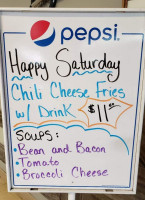 pepsi.
Happy Saturday
Chili Cheese Fries
w/ Drink $11.00
Soups:
• Bean and Bacon
• Tomato
• Broccoli Cheese